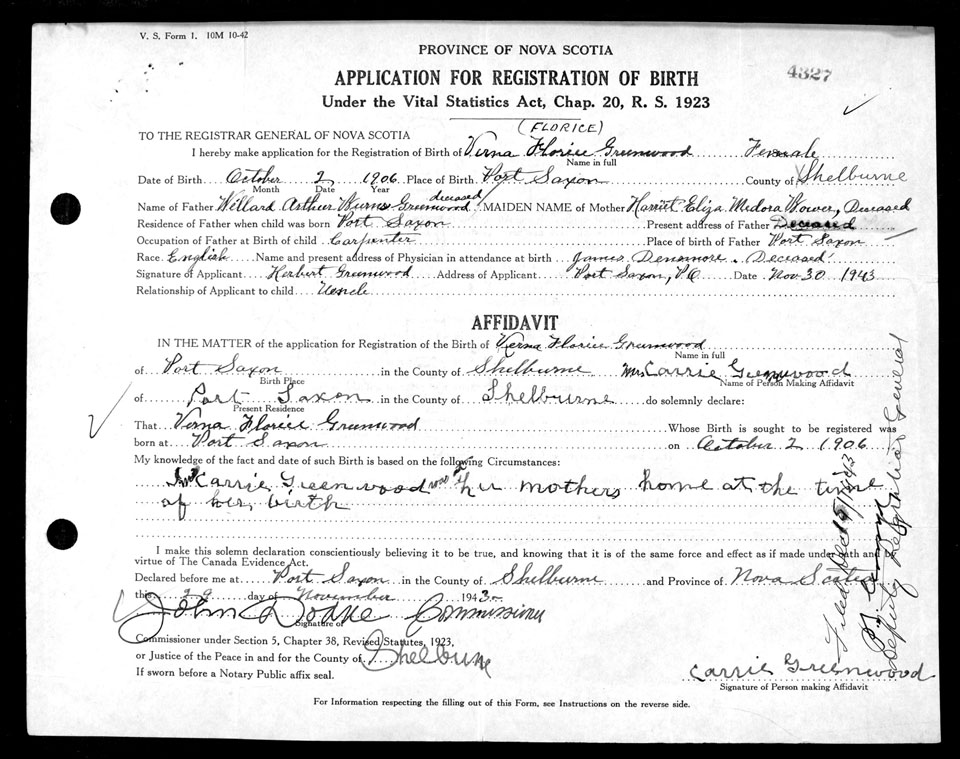 V. S. Form 1. 10M 10-42
PROVINCE OF NOVA SCOTIA
4327
APPLICATION FOR REGISTRATION OF BIRTH
Under the Vital Statistics Act, Chap. 20, R. S. 1923
(FLORICE)
TO THE REGISTRAR GENERAL OF NOVA SCOTIA
I hereby make application for the Registration of Birth of Verna Florice Greenwood Female
Name in full
Date of Birth October 2 1906 Place of Birth Port Saxon County of Shelburne
Month Date Year
Name of Father Willard Arthur Burns Greenwood deceased MAIDEN NAME of Mother Harriet Eliza Medora Bower, Deceased
Residence of Father when child was born Port Saxon Present address of Father Deceased
Occupation of Father at Birth of child Carpenter Place of Birth of Father Port Saxon
Race English Name and present address of Physician in attendance at birth James Densmore. Deceased
Signature of Applicant Herbert Greenwood Address of Applicant Port Saxon, P.O. Date Nov 30 1943
Relationship of Applicant to child Uncle
AFFIDAVIT
IN THE MATTER of the application for Registration of the Birth of Verna Florice Greenwood
Name in full
of Port Saxon in the County of Shelburne Mrs Carrie Greenwood
Birth Place Name of Person Making Affidavit
of Port Saxon in the County of Shelburne do solemnly declare:
Present Residence
That Verna Florice Greenwood Whose Birth is sought to be registered was
born at Port Saxon on October 2 1906
My knowledge of the fact and date of such Birth is based on the following Circumstances:
Carrie Greenwood was at her mothers home at the time
of her birth
I make this solemn declaration conscientiously believing it to be true, and knowing that it is of the same force and effect as if made under oath and by
virtue of The Canada Evidence Act.
Declared before me at Port Saxon in the County of Shelburne and Province of Nova Scotia
this 29 day of November 1943
John Doane Commissioner
Signature of
Commissioner under Section 5, Chapter 38, Revised Statutes, 1923,
or Justice of the Peace in and for the County of Shelburne
If sworn before a Notary Public affix seal.
Carrie Greenwood
Signature of Person making Affidavit
For Information respecting the filling out of this Form, see Instructions on the reverse side.
Filed Dec 15/1943
Deputy Registrar General